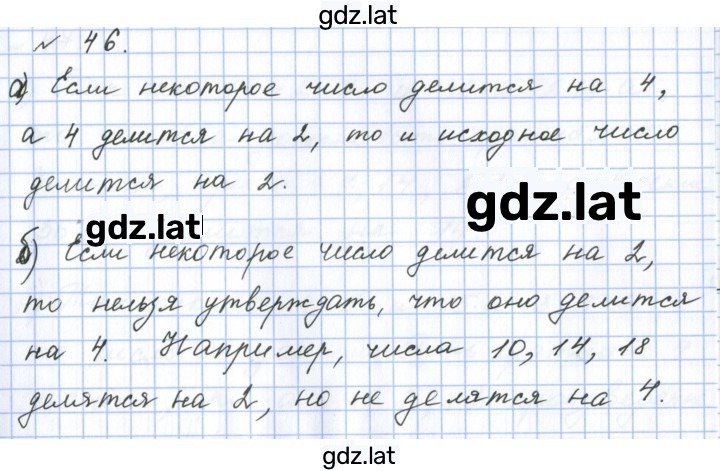 gdz.lat
№ 46.
а) Если некоторое число делится на 4,
а 4 делится на 2, то и исходное число
делится на 2.
gdz.lat
gdz.lat
б) Если некоторое число делится на 2,
то нельзя утверждать, что оно делится
на 4. Например, числа 10, 14, 18
делятся на 2, но не делятся на 4.
gdz.lat